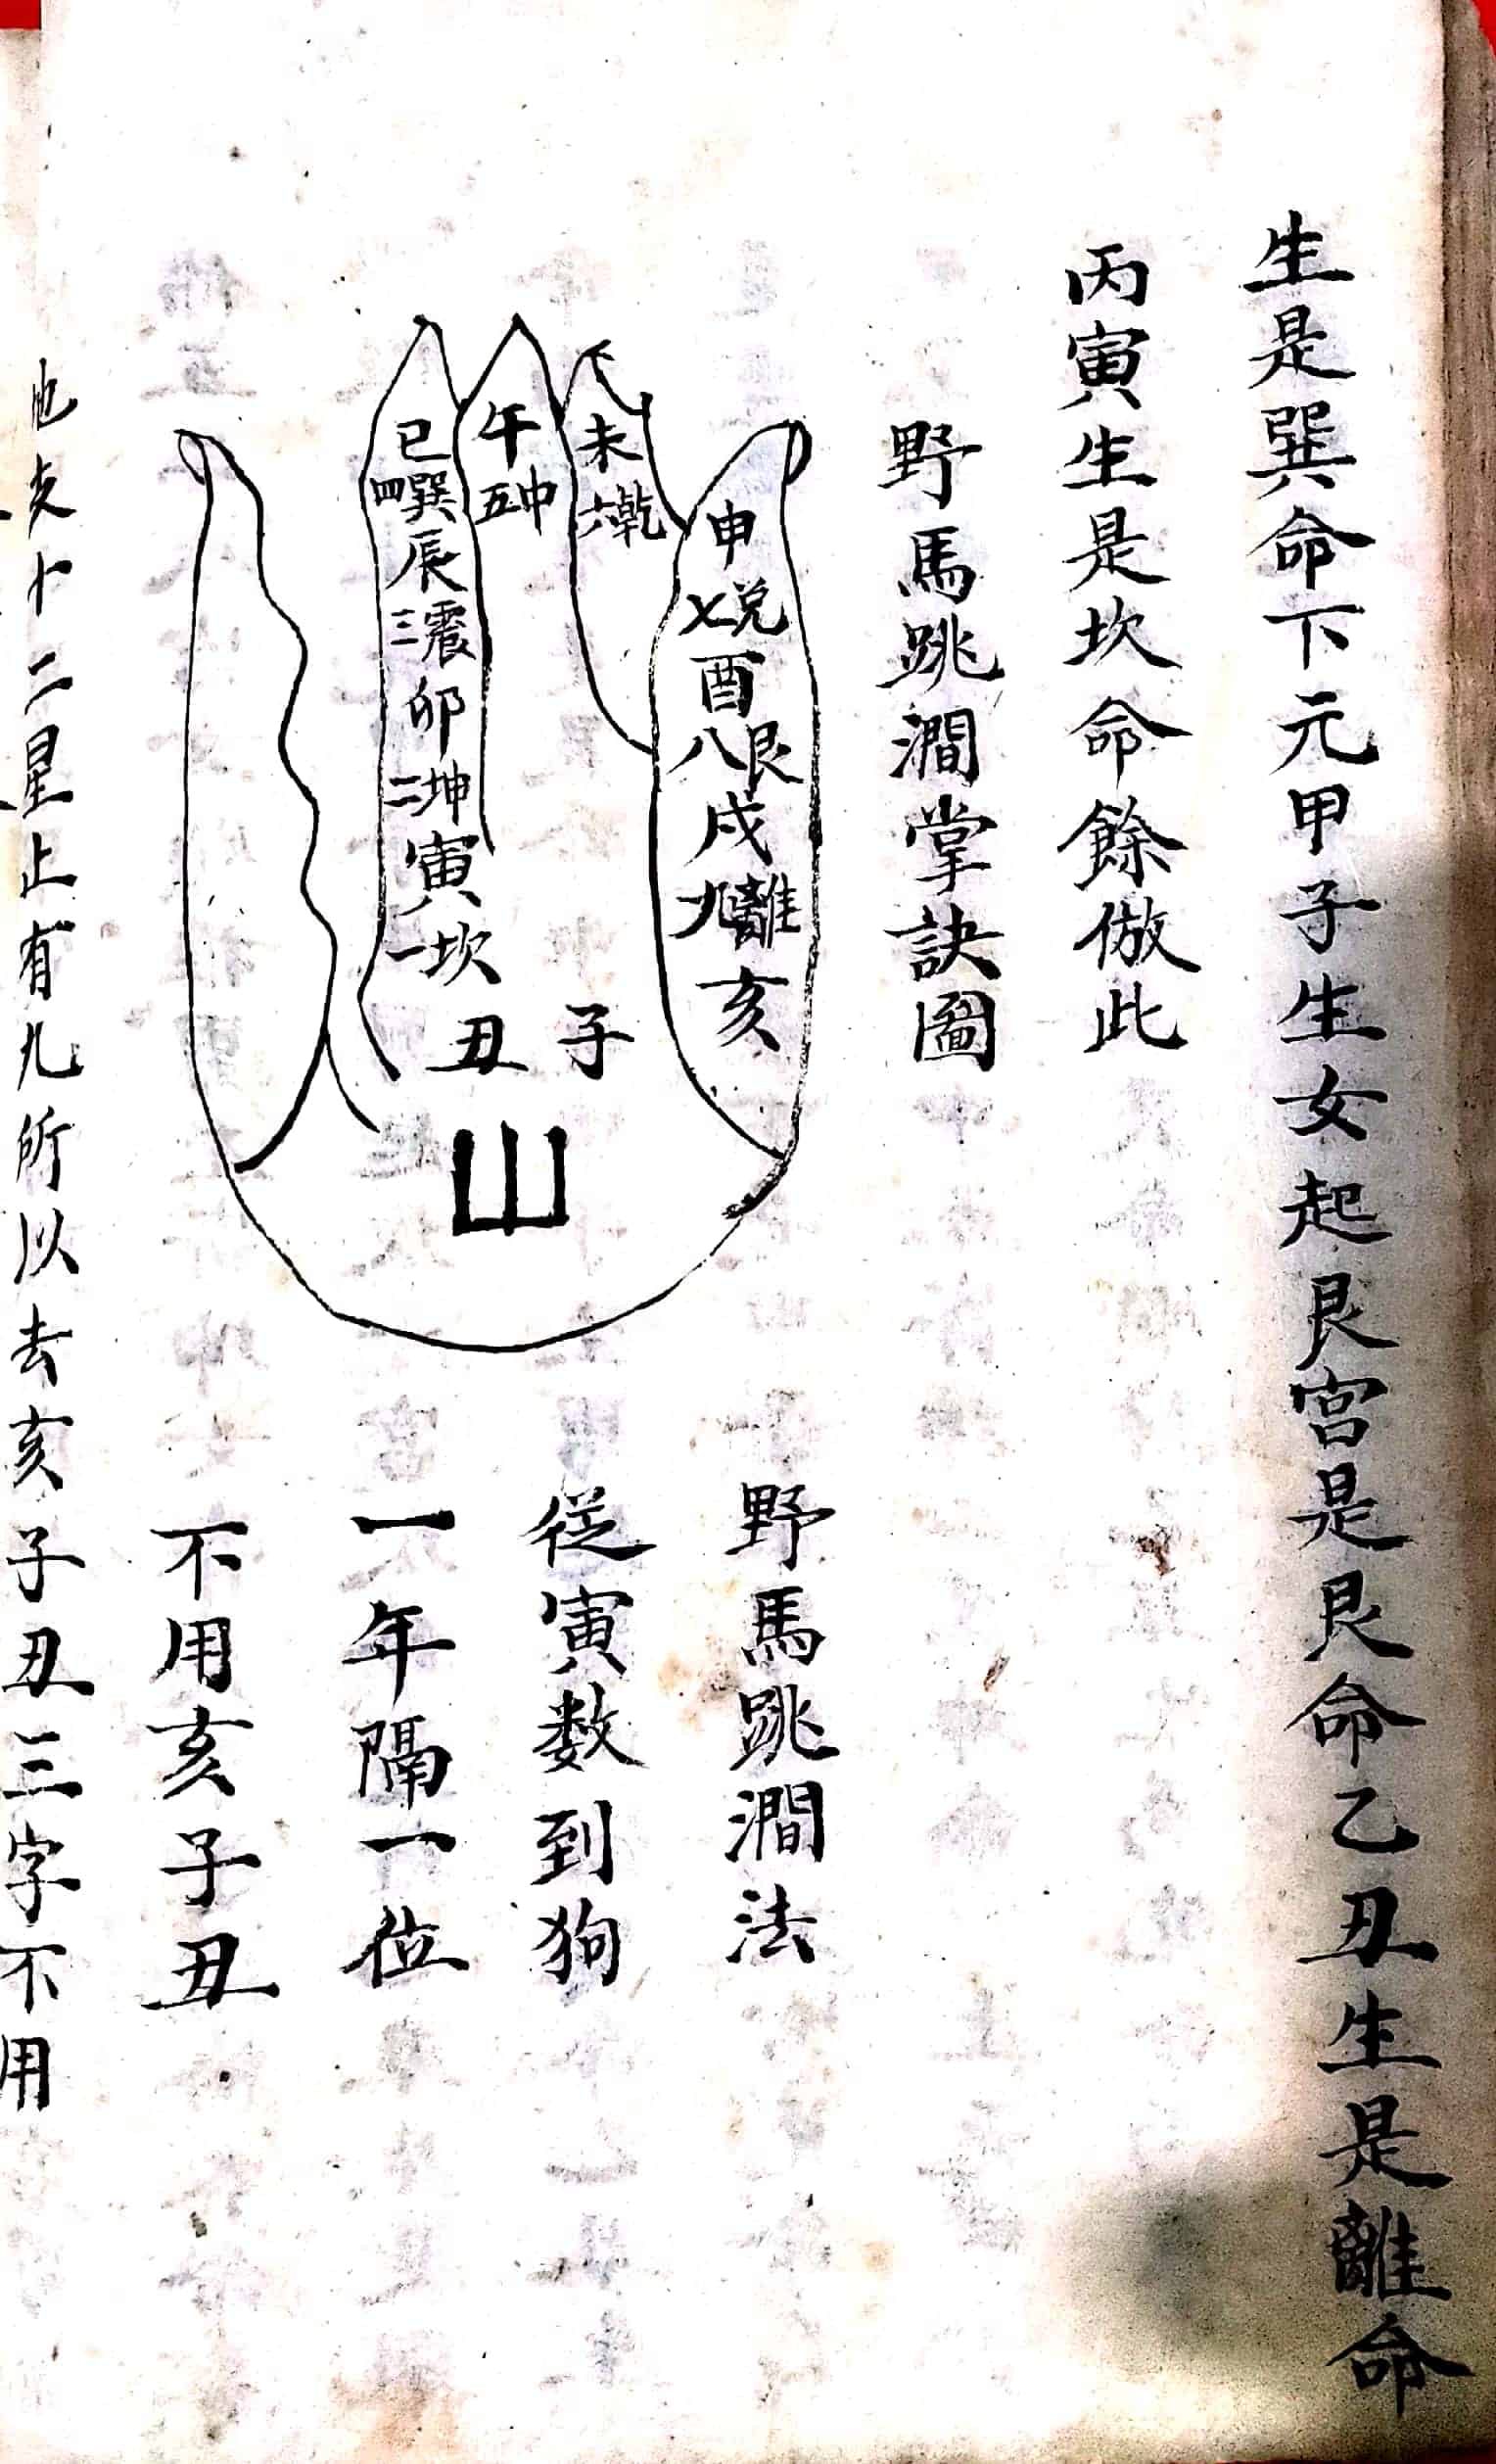 生是巽命下元甲子生女起艮宮是艮命乙丑生是離命
丙寅生是坎命餘倣此
野馬跳澗掌訣圖
申
七兌
酉
八艮
戌
九離
亥
未
六乾
午
五中
巳
四巽
辰
三震
卯
二坤
寅
一坎
丑
子
山
野馬跳澗法
從寅数到狗
一年隔一位
不用亥子丑
十二星止有九所以去亥子丑三字不用